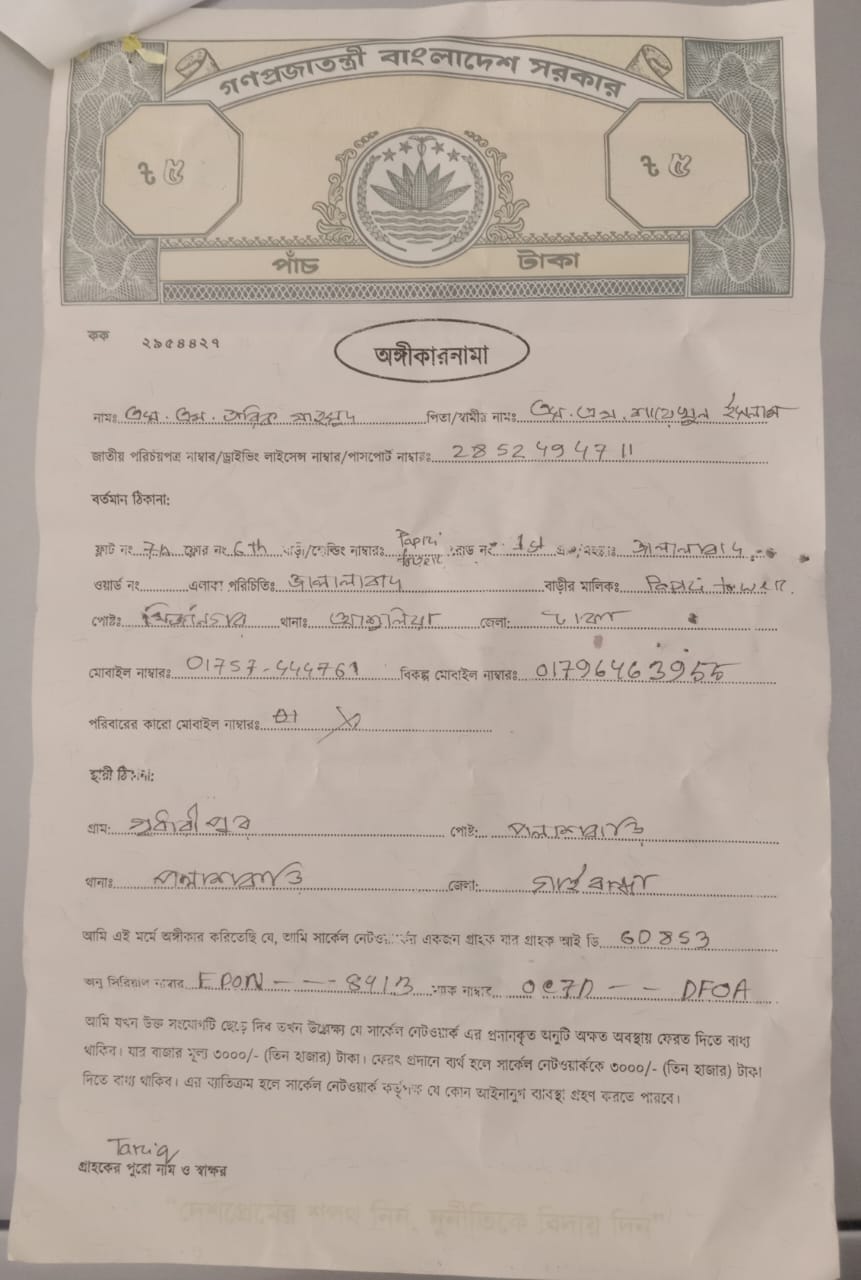 গণপ্রজাতন্ত্রী বাংলাদেশ সরকার
৳ ৫ ৳ ৫
পাঁচ টাকা
কক ২৯৫৪৪২৭
অঙ্গীকারনামা
নামঃ এম. এস. তারিক মাহমুদ পিতা/স্বামীর নামঃ এম. এস. ইসলাম
জাতীয় পরিচয়পত্র নাম্বার/ড্রাইভিং লাইসেন্স নাম্বার/পাসপোর্ট নাম্বারঃ 2852494711
বর্তমান ঠিকানা:
ফ্লাট নং 7h ফ্লোর নং 6th বাড়ী/হোল্ডিং নাম্বারঃ Papri tower রোড নং 1st
ওয়ার্ড নং এলাকা পরিচিতিঃ জালালাবাদ বাড়ীর মালিকঃ tower.
পোষ্টঃ মির্জানগর থানাঃ আশুলিয়া জেলা: ঢাকা
মোবাইল নাম্বারঃ 01757-444761 বিকল্প মোবাইল নাম্বারঃ 01796463955
পরিবারের কারো মোবাইল নাম্বারঃ
স্থায়ী ঠিকানা:
গ্রাম: পোষ্ট: পলাশবাড়ি
থানাঃ পলাশবাড়ি জেলা: গাইবান্ধা
আমি এই মর্মে অঙ্গীকার করিতেছি যে, আমি সার্কেল নেটওয়ার্কের একজন গ্রাহক যার গ্রাহক আই ডি 60853
অনু সিরিয়াল নাম্বার EPON - - - 8413 ম্যাক নাম্বার 0C7D - - DF0A
আমি যখন উক্ত সংযোগটি ছেড়ে দিব তখন উল্লেক্ষ্য যে সার্কেল নেটওয়ার্ক এর প্রদানকৃত অনুটি অক্ষত অবস্থায় ফেরত দিতে বাধ্য
থাকিব। যার বাজার মূল্য ৩০০০/- (তিন হাজার) টাকা। ফেরৎ প্রদানে ব্যর্থ হলে সার্কেল নেটওয়ার্ককে ৩০০০/- (তিন হাজার) টাকা
দিতে বাধ্য থাকিব। এর ব্যতিক্রম হলে সার্কেল নেটওয়ার্ক কর্তৃপক্ষ যে কোন আইনানুগ ব্যবস্থা গ্রহণ করতে পারবে।
Tariq
গ্রাহকের পুরো নাম ও স্বাক্ষর
"দেশপ্রেমের শপথ নিন, দুর্নীতিকে বিদায় দিন"